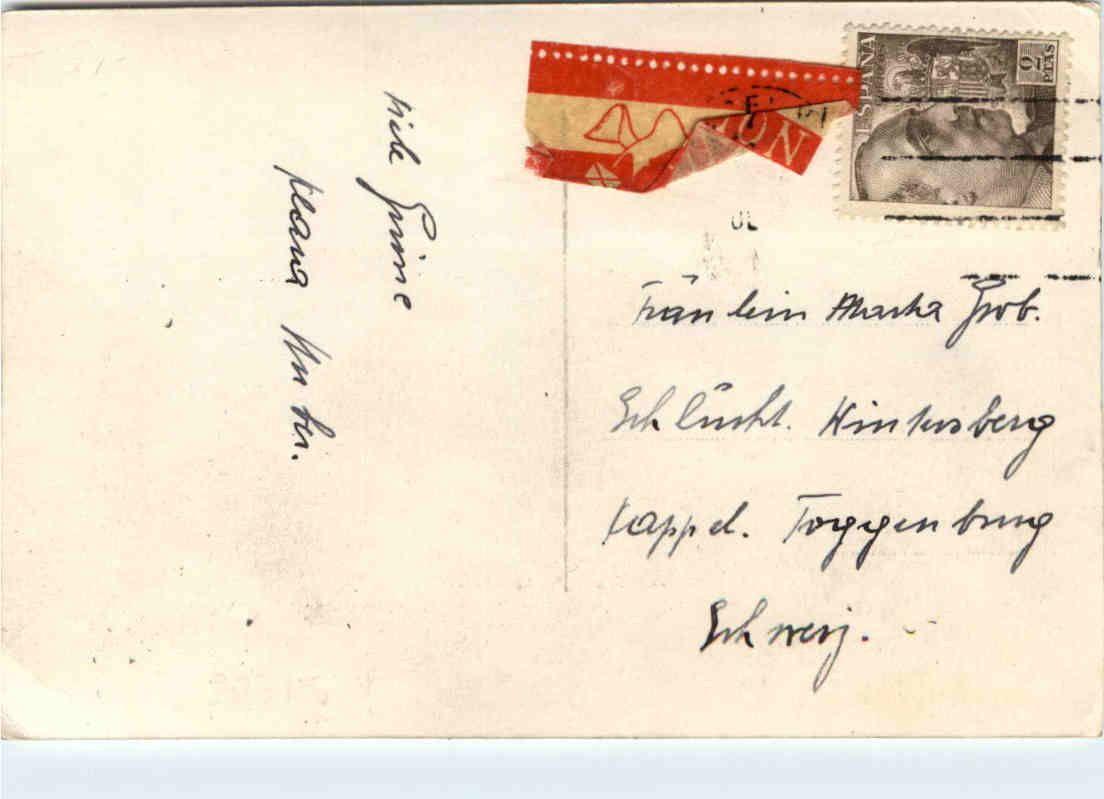 viele Grüsse
Klara Huber.
ESPAÑA
2 PTAS
Fräulein Martha Grob.
Schlücht. Wintersberg
Kappel. Toggenburg
Schweiz.